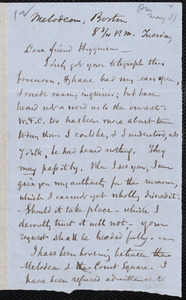 Melodeon, Boston
8 3/4 P.M. Tuesday
Dear friend Higginson—
I only got your telegraph this
forenoon, & have had my ears open,
& made many inquiries; but have
heard not a word as to the arrest.
W. F. C. who has been more about town
to day than I could be, & I understand, at
, he had heard nothing. They
may pass it by. When I see you, I can
give you my authority for the rumour,
which I cannot yet wholly discredit.
Should it take place — which I
devoutly trust it will not — your
request shall be heeded fully.
I have been hovering between the
Melodeon & the Court Square. I
have been refused admittance to